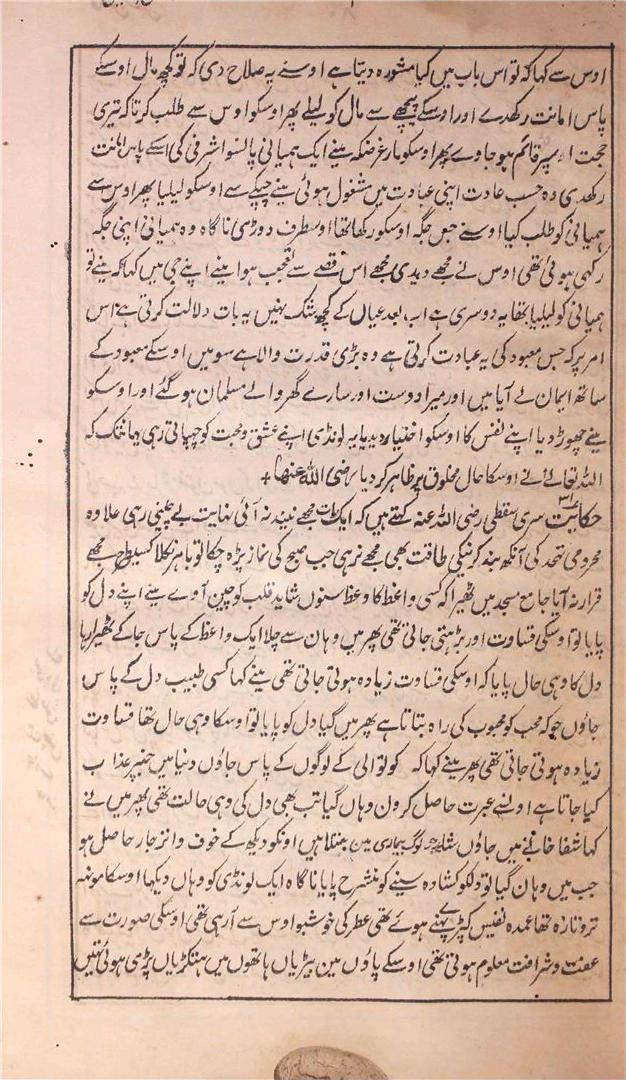 اوس سے کہا کہ تو اس باب میں کیا مشورہ دیتا ہے اوسنے یہ صلاح دی کہ تو کچھ مال اوسکے
پاس امانت رکھدے اور اوسکے پیچھے سے مال کو لیلے پھر اوسکو اوس سے طلب کر تاکہ تیری
حجت اوسپر قائم ہو جاوے پھر اوسکو مار غرضکہ مینے ایک ہمیانی پانسو اشرفی کی اسکے پاس امانت
رکھدی وہ حسب عادت اپنی عبادت میں مشغول ہوئی مینے چپکے سے اوسکو لیلیا پھر اوس سے
ہمیانی کو طلب کیا اوسنے جس جگہ اوسکو رکھا تھا اوسطرف دوڑی ناگاہ وہ ہمیانی اپنی جگہ
رکہی ہوئی تھی اوس نے مجھے دیدی مجھے اس قصے سے تعجب ہوا مینے اپنے جی میں کہا کہ مینے تو
ہمیانی کو لیلیا تھا یہ دوسری ہے اب بعد عیاں کے کچھ شک نہیں یہ بات دلالت کرتی ہے اس
امر پر کہ جس معبود کی یہ عبادت کرتی ہے وہ بڑی قدرت والا ہے سو میں اوسکے معبود کے
ساتھ ایمان لے آیا میں اور میرا دوست اور سارے گھر والے مسلمان ہو گئے اور اوسکو
مینے چھوڑ دیا اپنے نفس کا اوسکو اختیار دیدیا یہ لونڈی اپنے عشق و محبت کو چھپاتی رہی یہانتک کہ
اللہ تعالےٰ نے اوسکا حال مخلوق پر ظاہر کر دیا رضی اللہ عنہا +
حکایت ۳۱ سری سقطی رضی اللہ عنہ کہتے ہیں کہ ایک رات مجھے نیند نہ آئی نہایت بے چینی رہی علاوہ
محرومی تہجد کی آنکھ بند کرنیکی طاقت بھی مجھے نرہی جب صبح کی نماز پڑہ چکا تو باہر نکلا کسیطرح مجھے
قرار نہ آیا جامع مسجد میں ٹھیرا کہ کسی واعظ کا وعظ سنوں شاید قلب کو چین آوے مینے اپنے دل کو
پایا تو اوسکی قساوت اور بڑہتی جاتی تھی پھر میں وہان سے چلا ایک واعظ کے پاس جا کے ٹھیرا رہا
دل کا وہی حال پایا کہ اوسکی قساوت زیادہ ہوتی جاتی تھی مینے کہا کسی طبیب دل کے پاس
جاؤں جو کہ محب کو محبوب کی راہ بتاتا ہے پھر میں گیا دل کو پایا تو اوسکا وہی حال تھا قساوت
زیادہ ہوتی جاتی تھی پھر مینے کہا کہ کوتوالی کے لوگوں کے پاس جاؤں دنیا میں جنپر عذاب
کیا جاتا ہے اونسے عبرت حاصل کرون وہاں گیا تب بھی دل کی وہی حالت تھی پھر میں نے
کہا شفا خانے میں جاؤں شاید جو لوگ بیماری مین مبتلا ہیں اونکو دیکھ کے خوف و انزجار حاصل ہو
جب میں وہان گیا تو دلکو کشادہ سینے کو منشرح پایا ناگاہ ایک لونڈی کو وہاں دیکھا اوسکا مونہہ
تروتازہ تھا عمدہ نفیس کپڑے پہنے ہوئے تھی عطر کی خوشبو اوس سے آرہی تھی اوسکی صورت سے
عفت و شرافت معلوم ہوتی تھی اوسکے پاؤں مین بیڑیاں ہاتھوں میں ہتکڑیاں پڑی ہوئی تہیں